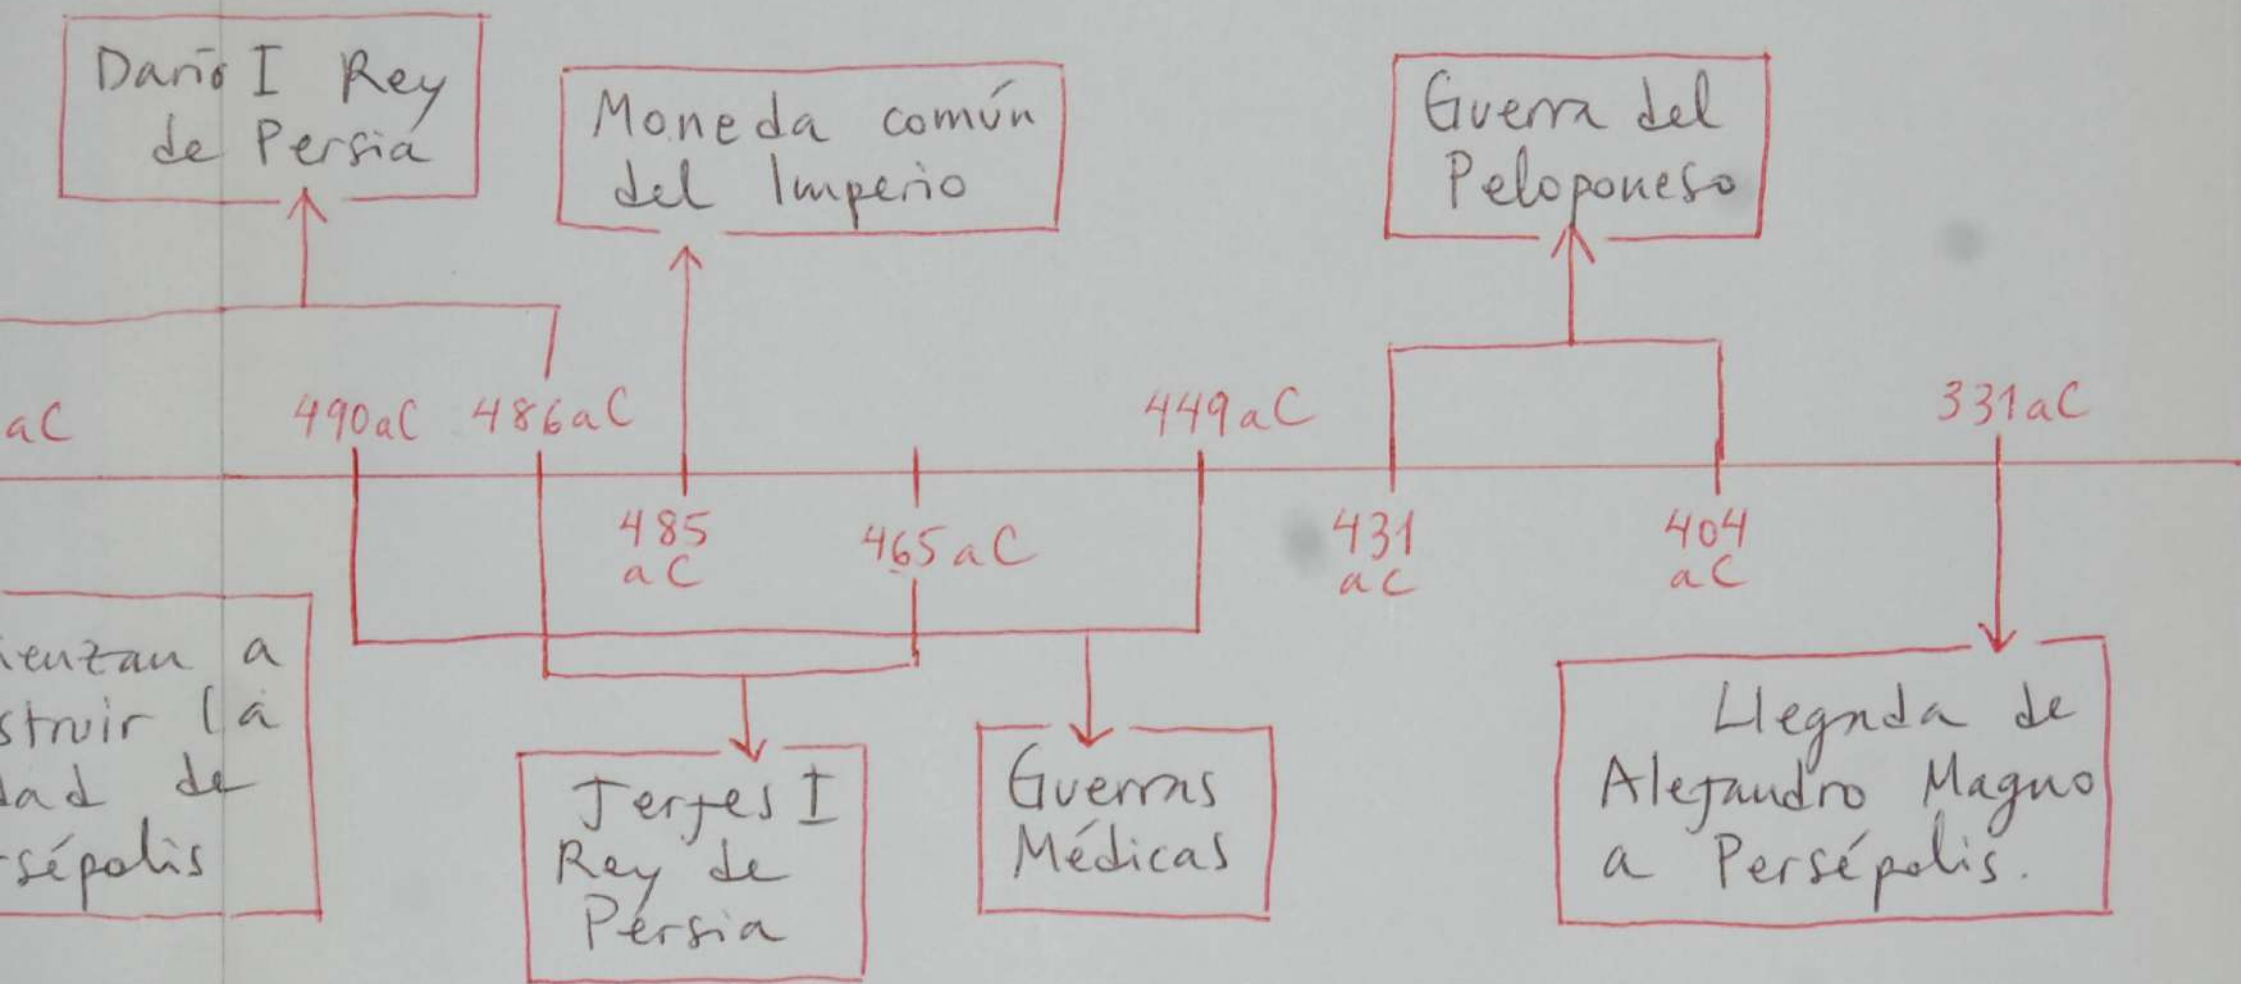 Darío I Rey
de Persia
Moneda común
del Imperio
Guerra del
Peloponeso
aC
490aC
486aC
449aC
331aC
485
aC
465aC
431
aC
404
aC
ienzan a
struir la
dad de
rsépolis
Jerjes I
Rey de
Persia
Guerras
Médicas
Llegada de
Alejandro Magno
a Persépolis.